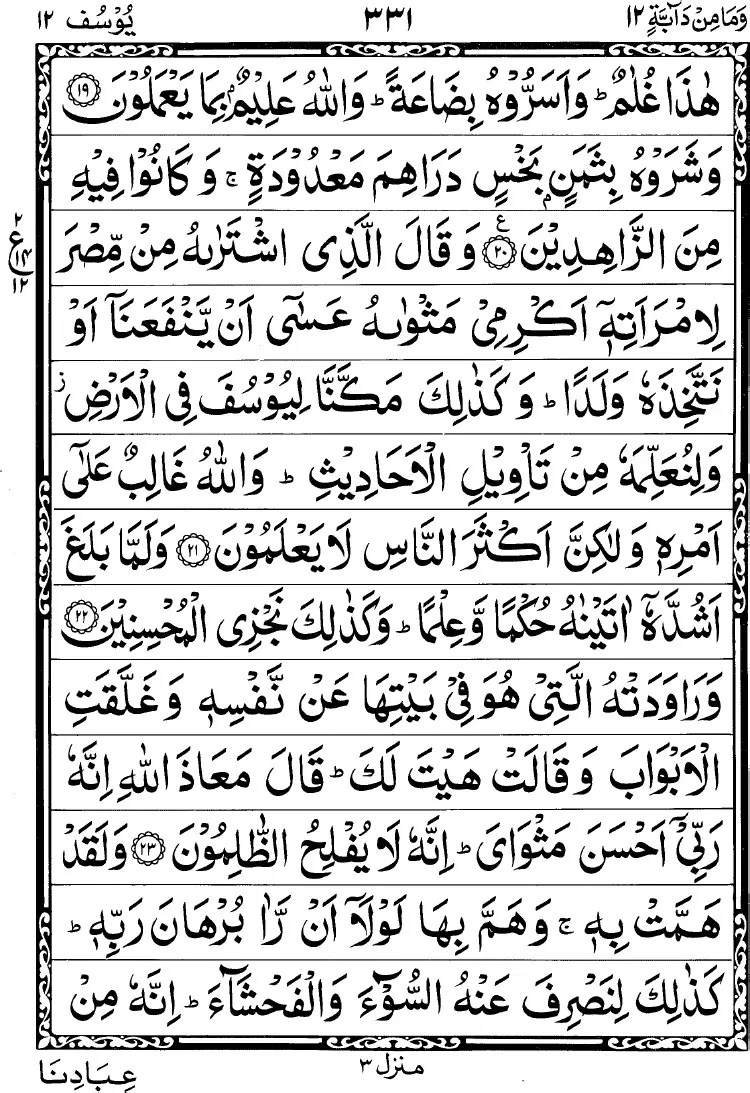 وَمَا مِنْ دَآبَّةٍ ١٢ ٣٣١ يُوْسُف ١٢
هٰذَا غُلٰمٌ ؕ وَاَسَرُّوْهُ بِضَاعَةً ؕ وَاللّٰهُ عَلِيْمٌۢ بِمَا يَعْمَلُوْنَ ﴿١٩﴾
وَشَرَوْهُ بِثَمَنٍۭ بَخْسٍ دَرَاهِمَ مَعْدُوْدَةٍ ۚ وَكَانُوْا فِيْهِ
مِنَ الزَّاهِدِيْنَ ﴿٢٠﴾ ع وَقَالَ الَّذِى اشْتَرٰىهُ مِنْ مِّصْرَ
٢
ع
١٤
١٢
لِامْرَاَتِهٖۤ اَكْرِمِىْ مَثْوٰىهُ عَسٰۤى اَنْ يَّنْفَعَنَاۤ اَوْ
نَتَّخِذَهٗ وَلَدًا ؕ وَكَذٰلِكَ مَكَّنَّا لِيُوْسُفَ فِى الْاَرْضِ ز
وَلِنُعَلِّمَهٗ مِنْ تَاْوِيْلِ الْاَحَادِيْثِ ؕ وَاللّٰهُ غَالِبٌ عَلٰۤى
اَمْرِهٖ وَلٰكِنَّ اَكْثَرَ النَّاسِ لَا يَعْلَمُوْنَ ﴿٢١﴾ وَلَمَّا بَلَغَ
اَشُدَّهٗۤ اٰتَيْنٰهُ حُكْمًا وَّعِلْمًا ؕ وَكَذٰلِكَ نَجْزِى الْمُحْسِنِيْنَ ﴿٢٢﴾
وَرَاوَدَتْهُ الَّتِىْ هُوَ فِىْ بَيْتِهَا عَنْ نَّفْسِهٖ وَغَلَّقَتِ
الْاَبْوَابَ وَقَالَتْ هَيْتَ لَكَ ؕ قَالَ مَعَاذَ اللّٰهِ اِنَّهٗ
رَبِّىْۤ اَحْسَنَ مَثْوَاىَ ؕ اِنَّهٗ لَا يُفْلِحُ الظّٰلِمُوْنَ ﴿٢٣﴾ وَلَقَدْ
هَمَّتْ بِهٖ ۚ وَهَمَّ بِهَا لَوْلَاۤ اَنْ رَّاٰ بُرْهَانَ رَبِّهٖ ؕ
كَذٰلِكَ لِنَصْرِفَ عَنْهُ السُّوْٓءَ وَالْفَحْشَآءَ ؕ اِنَّهٗ مِنْ
منزل ٣
عِبَادِنَا